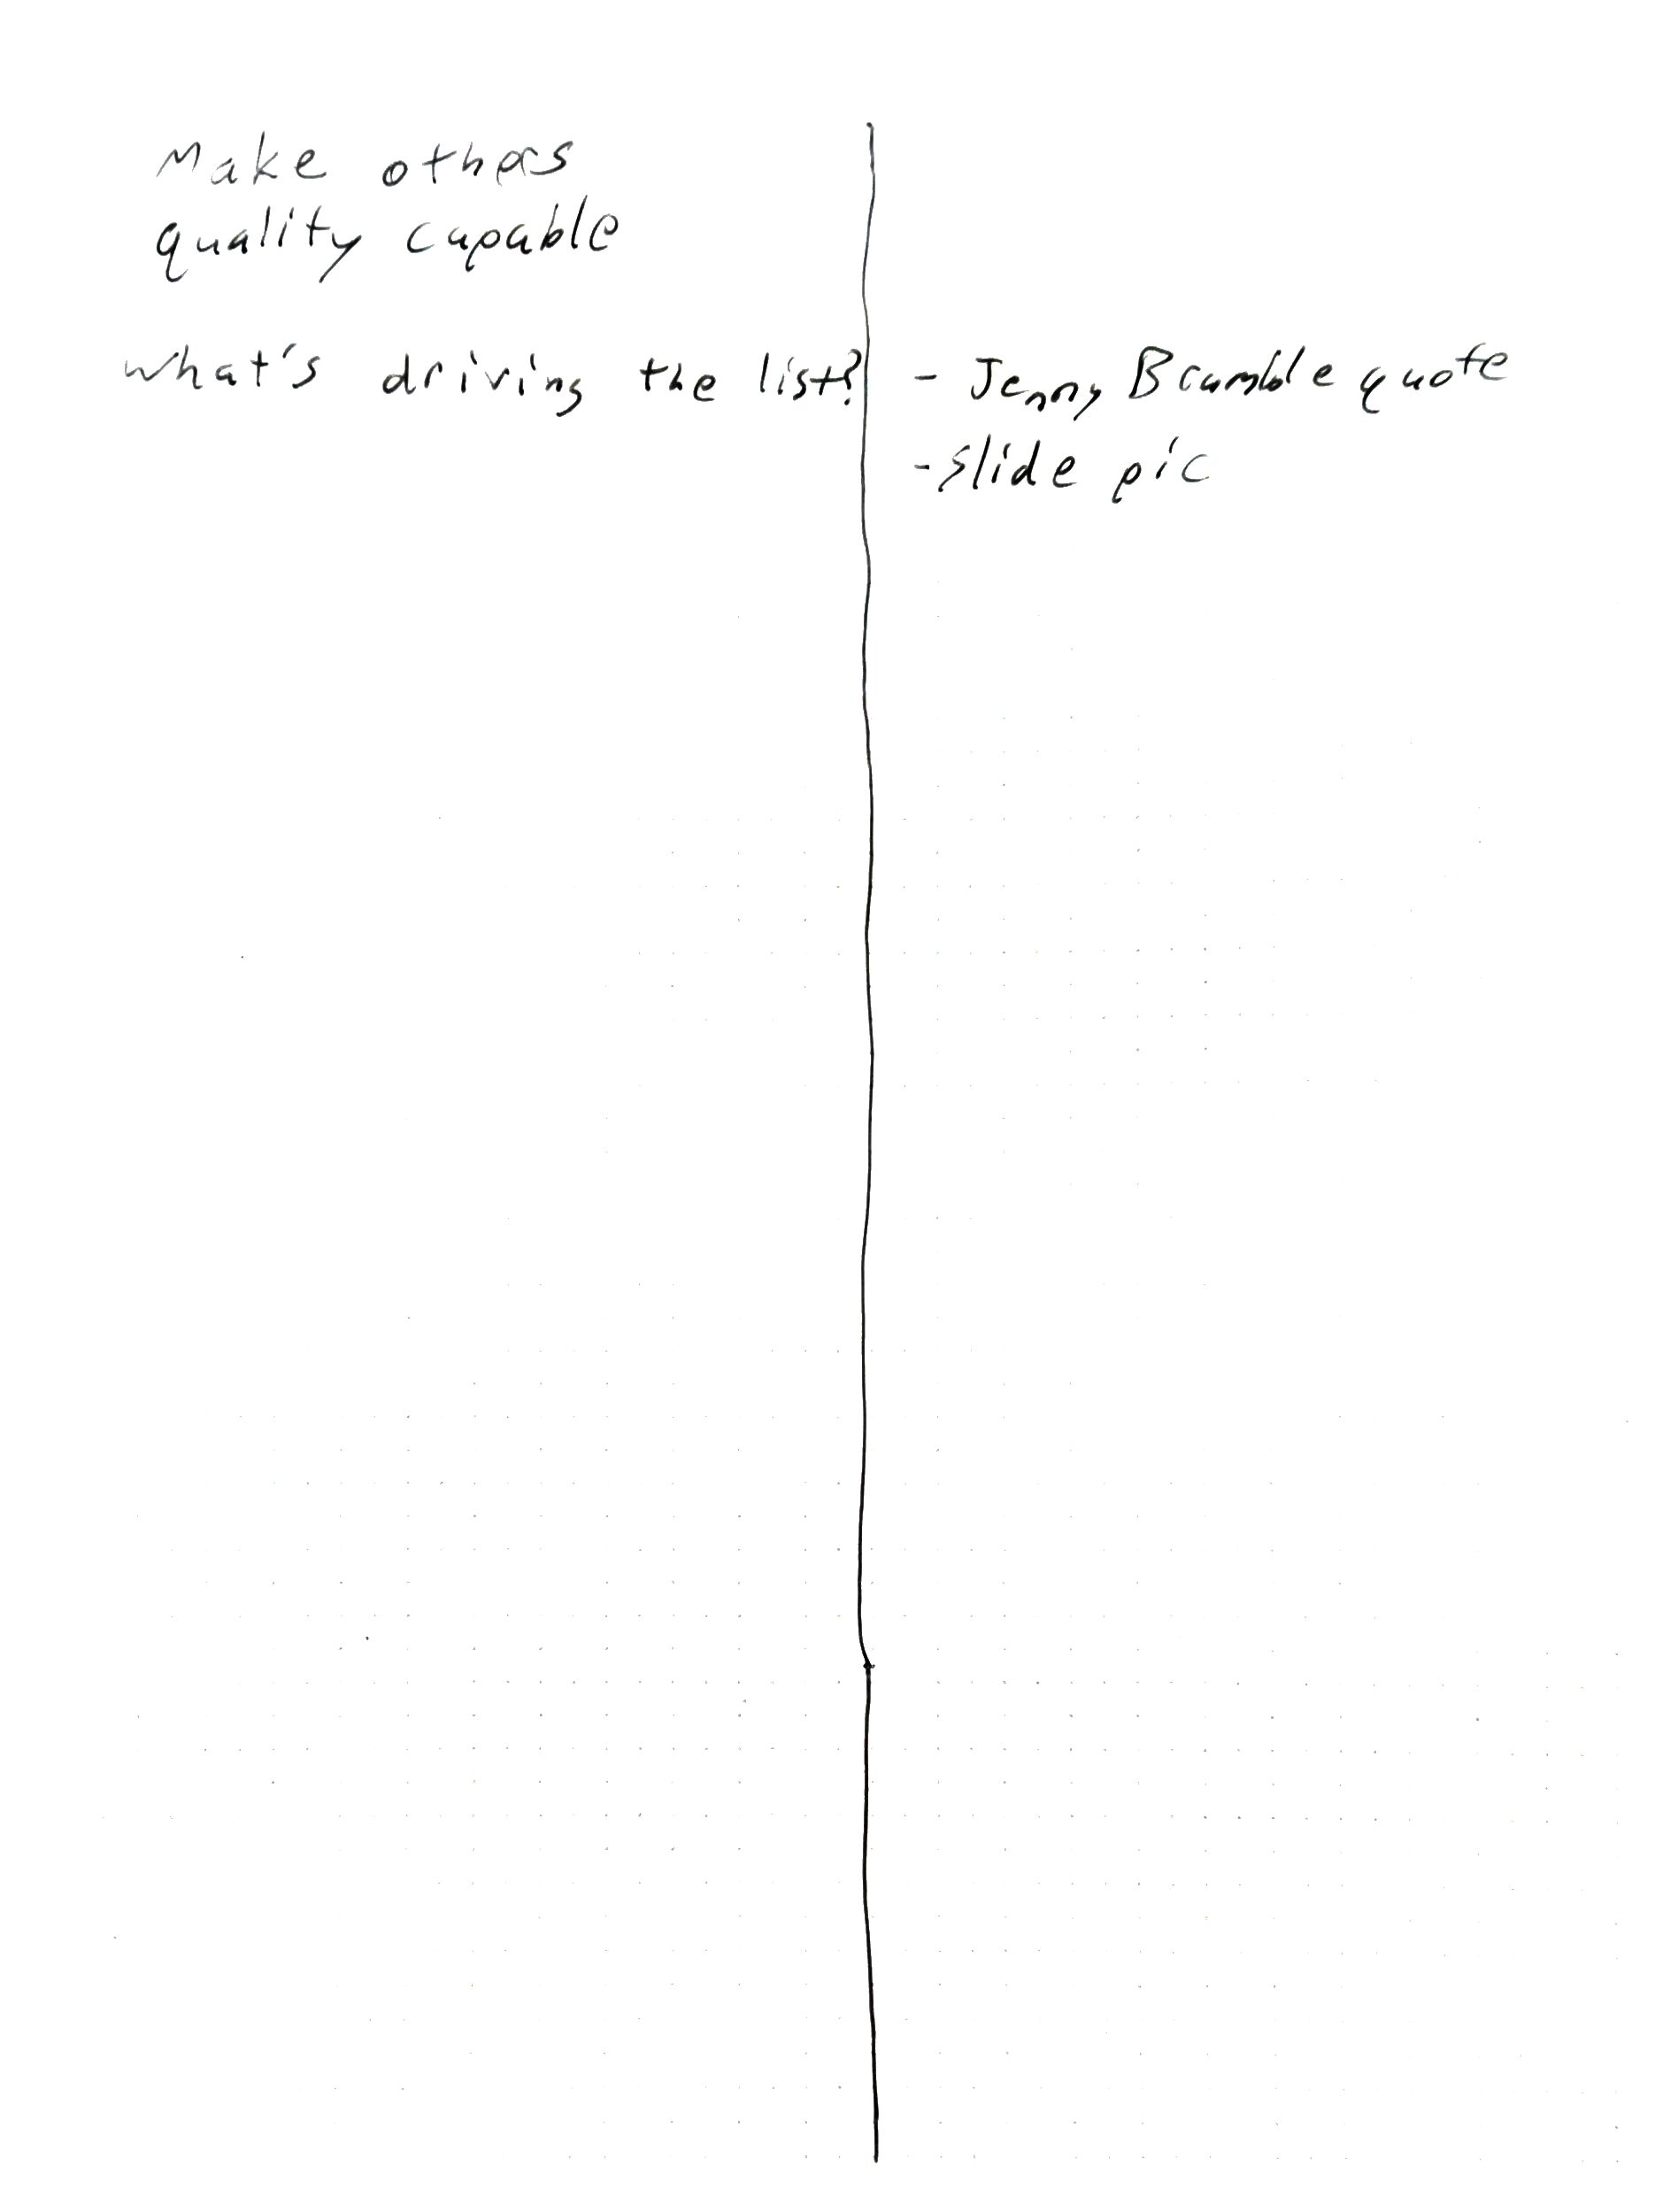 Make others
quality capable
What's driving the list?
- Jenny Bramble quote
- slide pic